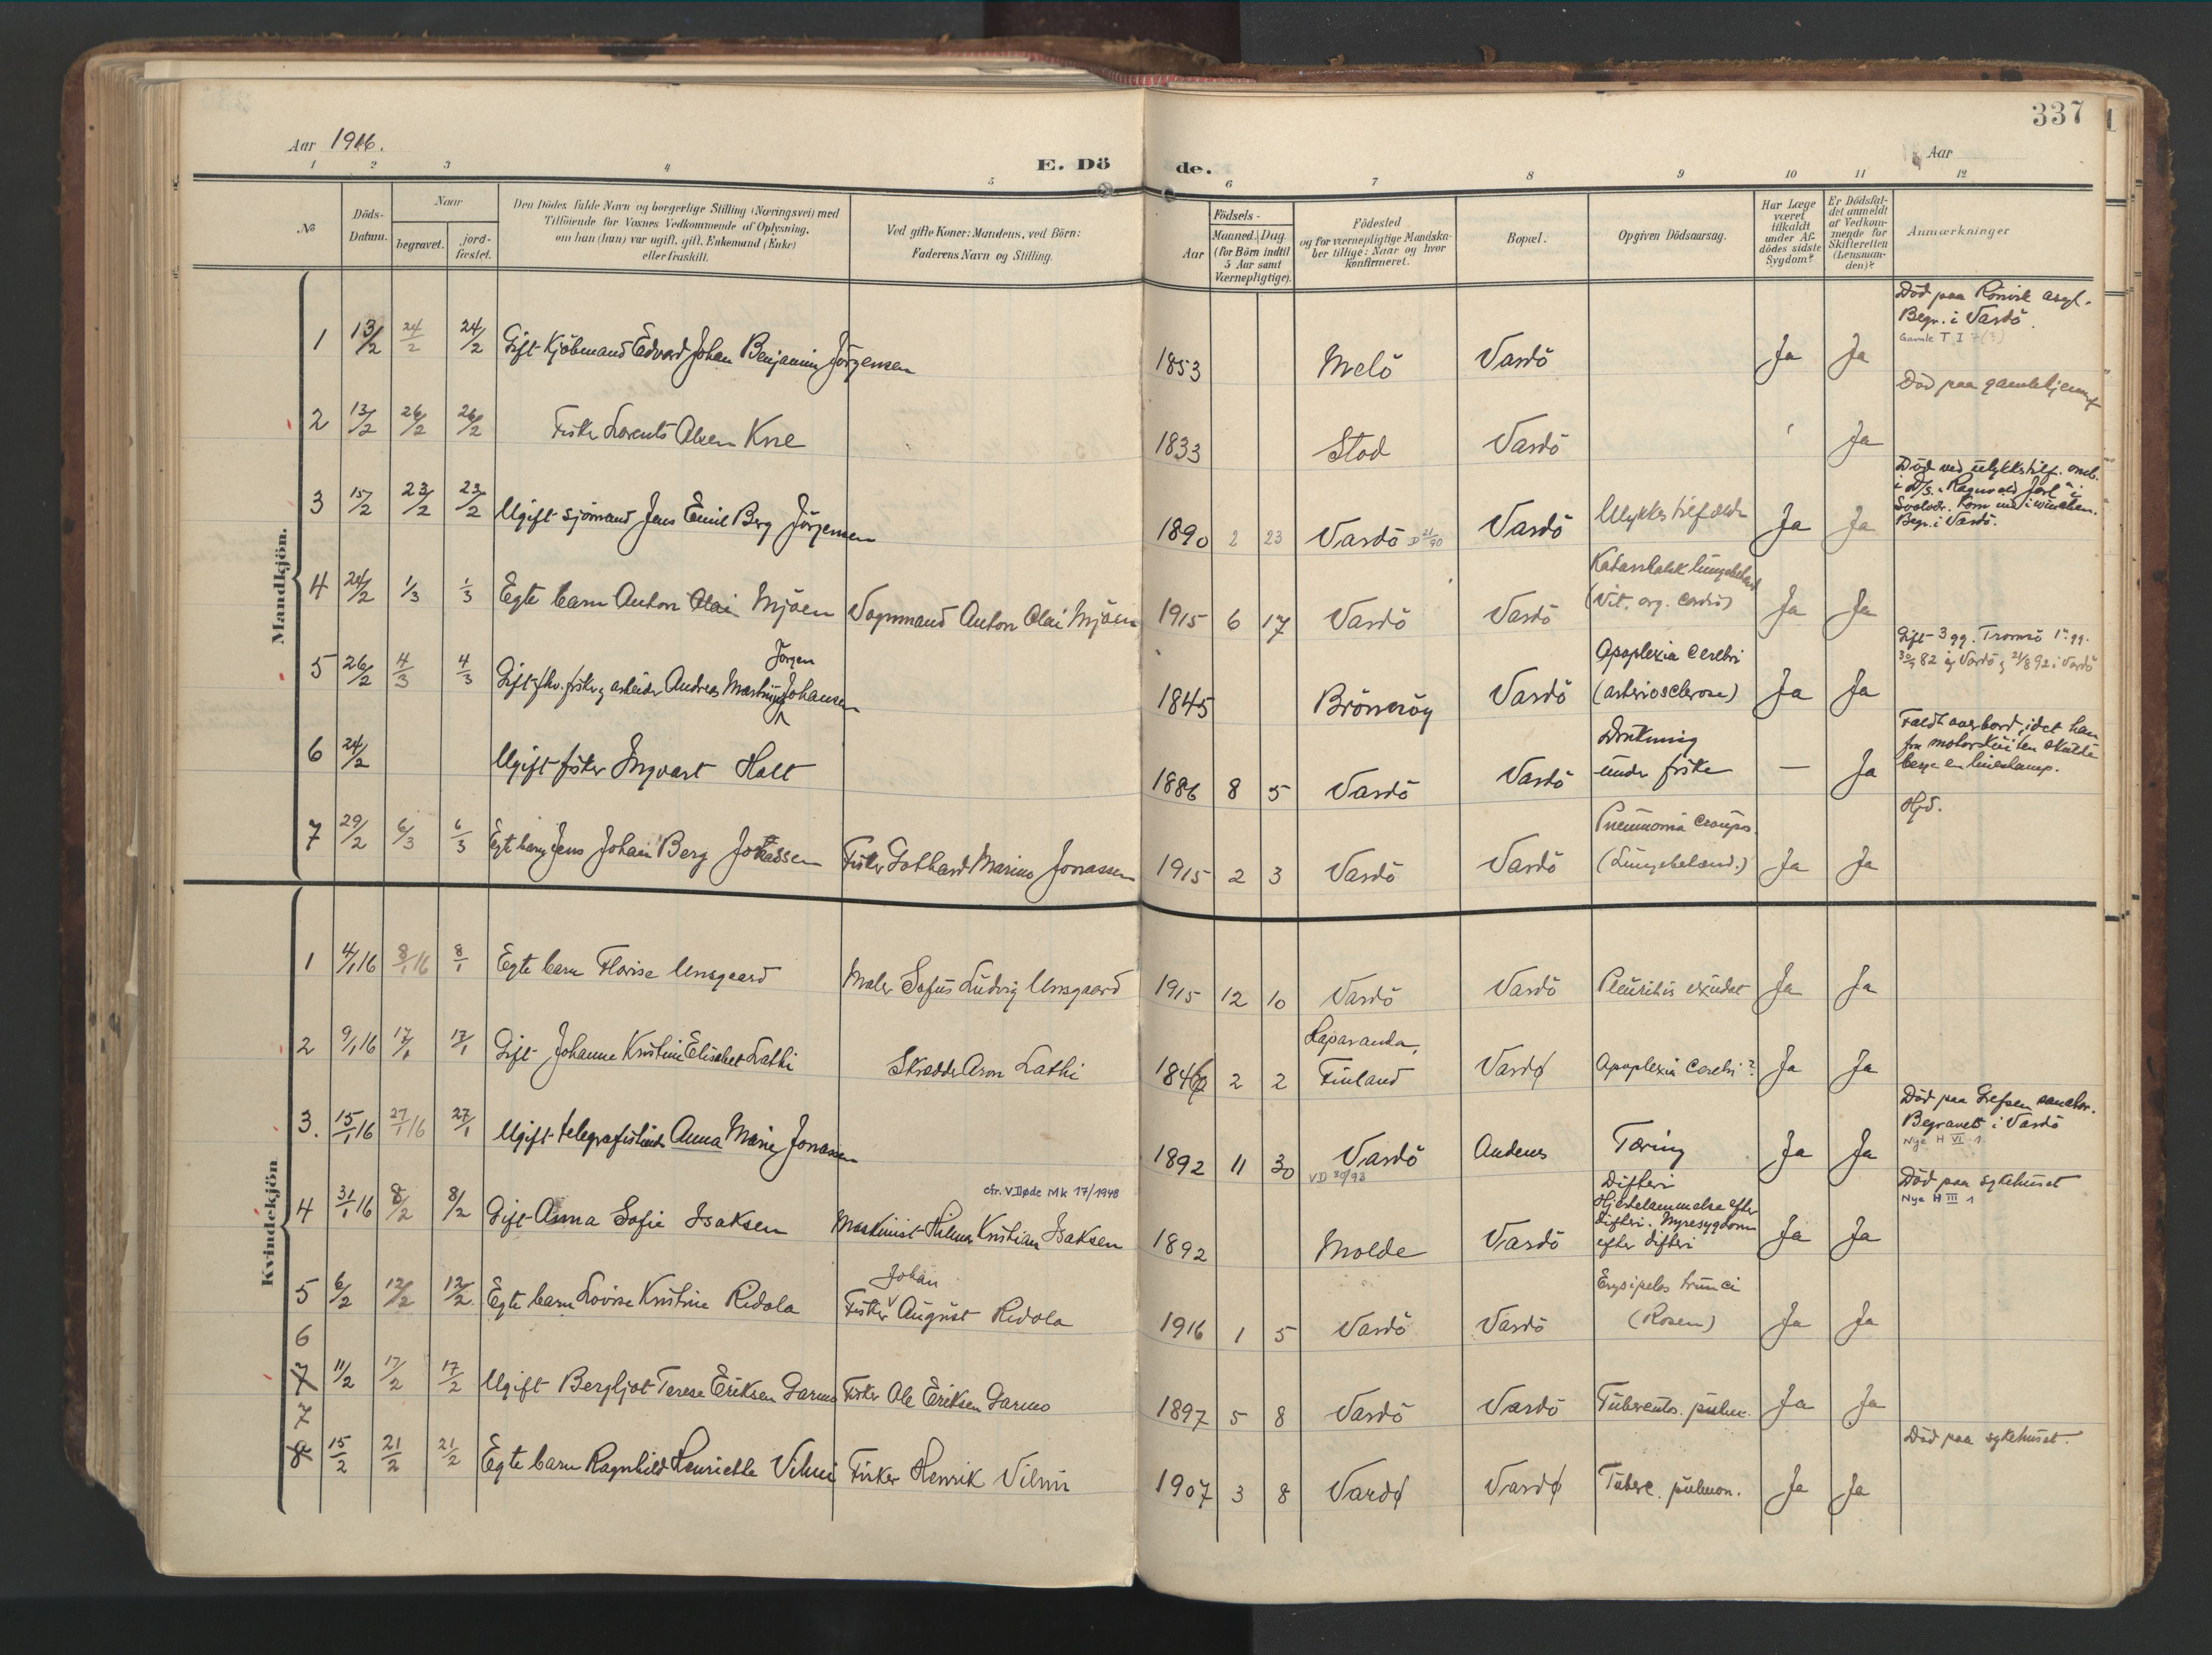 337
Aar 1916.
E. Döde.
Aar
1 2 3 4 5 6 7 8 9 10 11 12
№
Döds-Datum.
Naar
begravet.
jord-fæstet.
Den Dödes fulde Navn og borgerlige Stilling (Næringsvei) med
Tilföiende for Voxnes Vedkommende af Oplysning,
om han (hun) var ugift, gift, Enkemand (Enke)
eller fraskilt.
Ved gifte Koner: Mandens, ved Börn:
Faderens Navn og Stilling.
Födsels-
Aar
Maaned. Dag
(for Börn indtil
5 Aar samt
Værnepligtige).
Födested
og for værnepligtige Mandska-
ber tillige: Naar og hvor
konfirmeret.
Bopæl.
Opgiven Dödsaarsag.
Har Læge
været
tilkaldt
under Af-
dödes sidste
Sygdom?
Er Dödsfal-
det anmeldt
af Vedkom-
mende for
Skifteretten
(Lensman-
den)?
Anmærkninger
Mandkjön.
1 13/2 24/2 24/2 Gift Kjöbmand Edvard Johan Benjamin Jörgensen 1853 Melö Vardö Ja Ja
Död paa Rönvik asyl.
Begr. i Vardö.
Gamle T I 7 (3)
2 13/2 26/2 26/2 Fisker Lorents Olsen Kne 1833 Stod Vardö Ja
Död paa gamlehjemmet
3 15/2 23/2 23/2 Ugift sjömand Jens Emil Berg Jörgensen 1890 2 23 Vardö D 21/90 Vardö Ulykkestilfælde Ja Ja
Död ved ulykkestilf. omb.
i D/S. "Ragnvald Jarl" i
Svolvær. Kom ind i winchen.
Begr. i Vardö.
4 24/2 1/3 1/3 Egte barn Anton Olai Mjöen Vognmand Anton Olai Mjöen 1915 6 17 Vardö Vardö
Katarrhalsk lungebetænd
(Vit. org. cordis) Ja Ja
5 26/2 4/3 4/3 Gift fhv. fisker og arbeider Andreas Martinius Jörgen Johansen 1845 Brönnöy Vardö
Apoplexia cerebri
(arteriosclerose) Ja Ja
Gift 3 gg. Tromsö 1ste gg.
30/9 82 i Vardö og 21/8 92 i Vardö
6 24/2 Ugift fisker Ingvart Holt 1886 8 5 Vardö Vardö
Drukning
under fiske — Ja
Faldt overbord, idet han
fra motorskøiten skulde
berge en linestamp.
7 29/2 6/3 6/3 Egte barn Jens Johan Berg Jonassen Fisker Gothard Marino Jonassen 1915 2 3 Vardö Vardö
Pneumonia croupos.
(Lungebetænd.) Ja Ja
Hjd.
Kvindekjön
1 4/1 16 8/1 16 8/1 Egte barn Florise Unsgaard Maler Sofus Ludvig Unsgaard 1915 12 10 Vardö Vardö Pleuritis exudat Ja Ja
2 9/1 16 17/1 17/1 Gift Johanne Kristine Elisabet Lathi Skrædder Aron Lathi 1846 2 2 Haparanda, Finland Vardø Apoplexia Cerebri? Ja Ja
3. 15/1 16 27/1 16 27/1 Ugift telegrafistinde Anna Marie Jonassen 1892 11 30 Vardö VD 30/93 Andenes Tæring Ja Ja
Död paa Grefsen sanator.
Begravet i Vardö
Nye H VI 1
4 31/1 16 8/2 8/2 Gift Anna Sofie Isaksen Maskinist Hilmar Kristian Isaksen 1892 Molde Vardö
cfr. V Døde Mk 17/1948
Difteri
Hjertelammelse efter
difteri. Nyresygdom
efter difteri Ja Ja
Död paa sykehuset
Nye H III 1
5 6/2 12/2 12/2 Egte barn Lovise Kristine Ridola Fisker Johan August Ridola 1916 1 5 Vardö Vardö
Erysipelas trunci
(Rosen) Ja Ja
6
7 11/2 17/2 17/2 Ugift Bergljot Terese Eriksen Garmo Fisker Ole Eriksen Garmo 1897 5 8 Vardö Vardö Tuberculos. pulm. Ja Ja
7
8 15/2 21/2 21/2 Egte barn Ragnhild Henriette Vilmi Fisker Henrik Vilmi 1907 3 8 Vardø Vardø Tuberc. pulmon. Ja Ja
Död paa sykehuset.